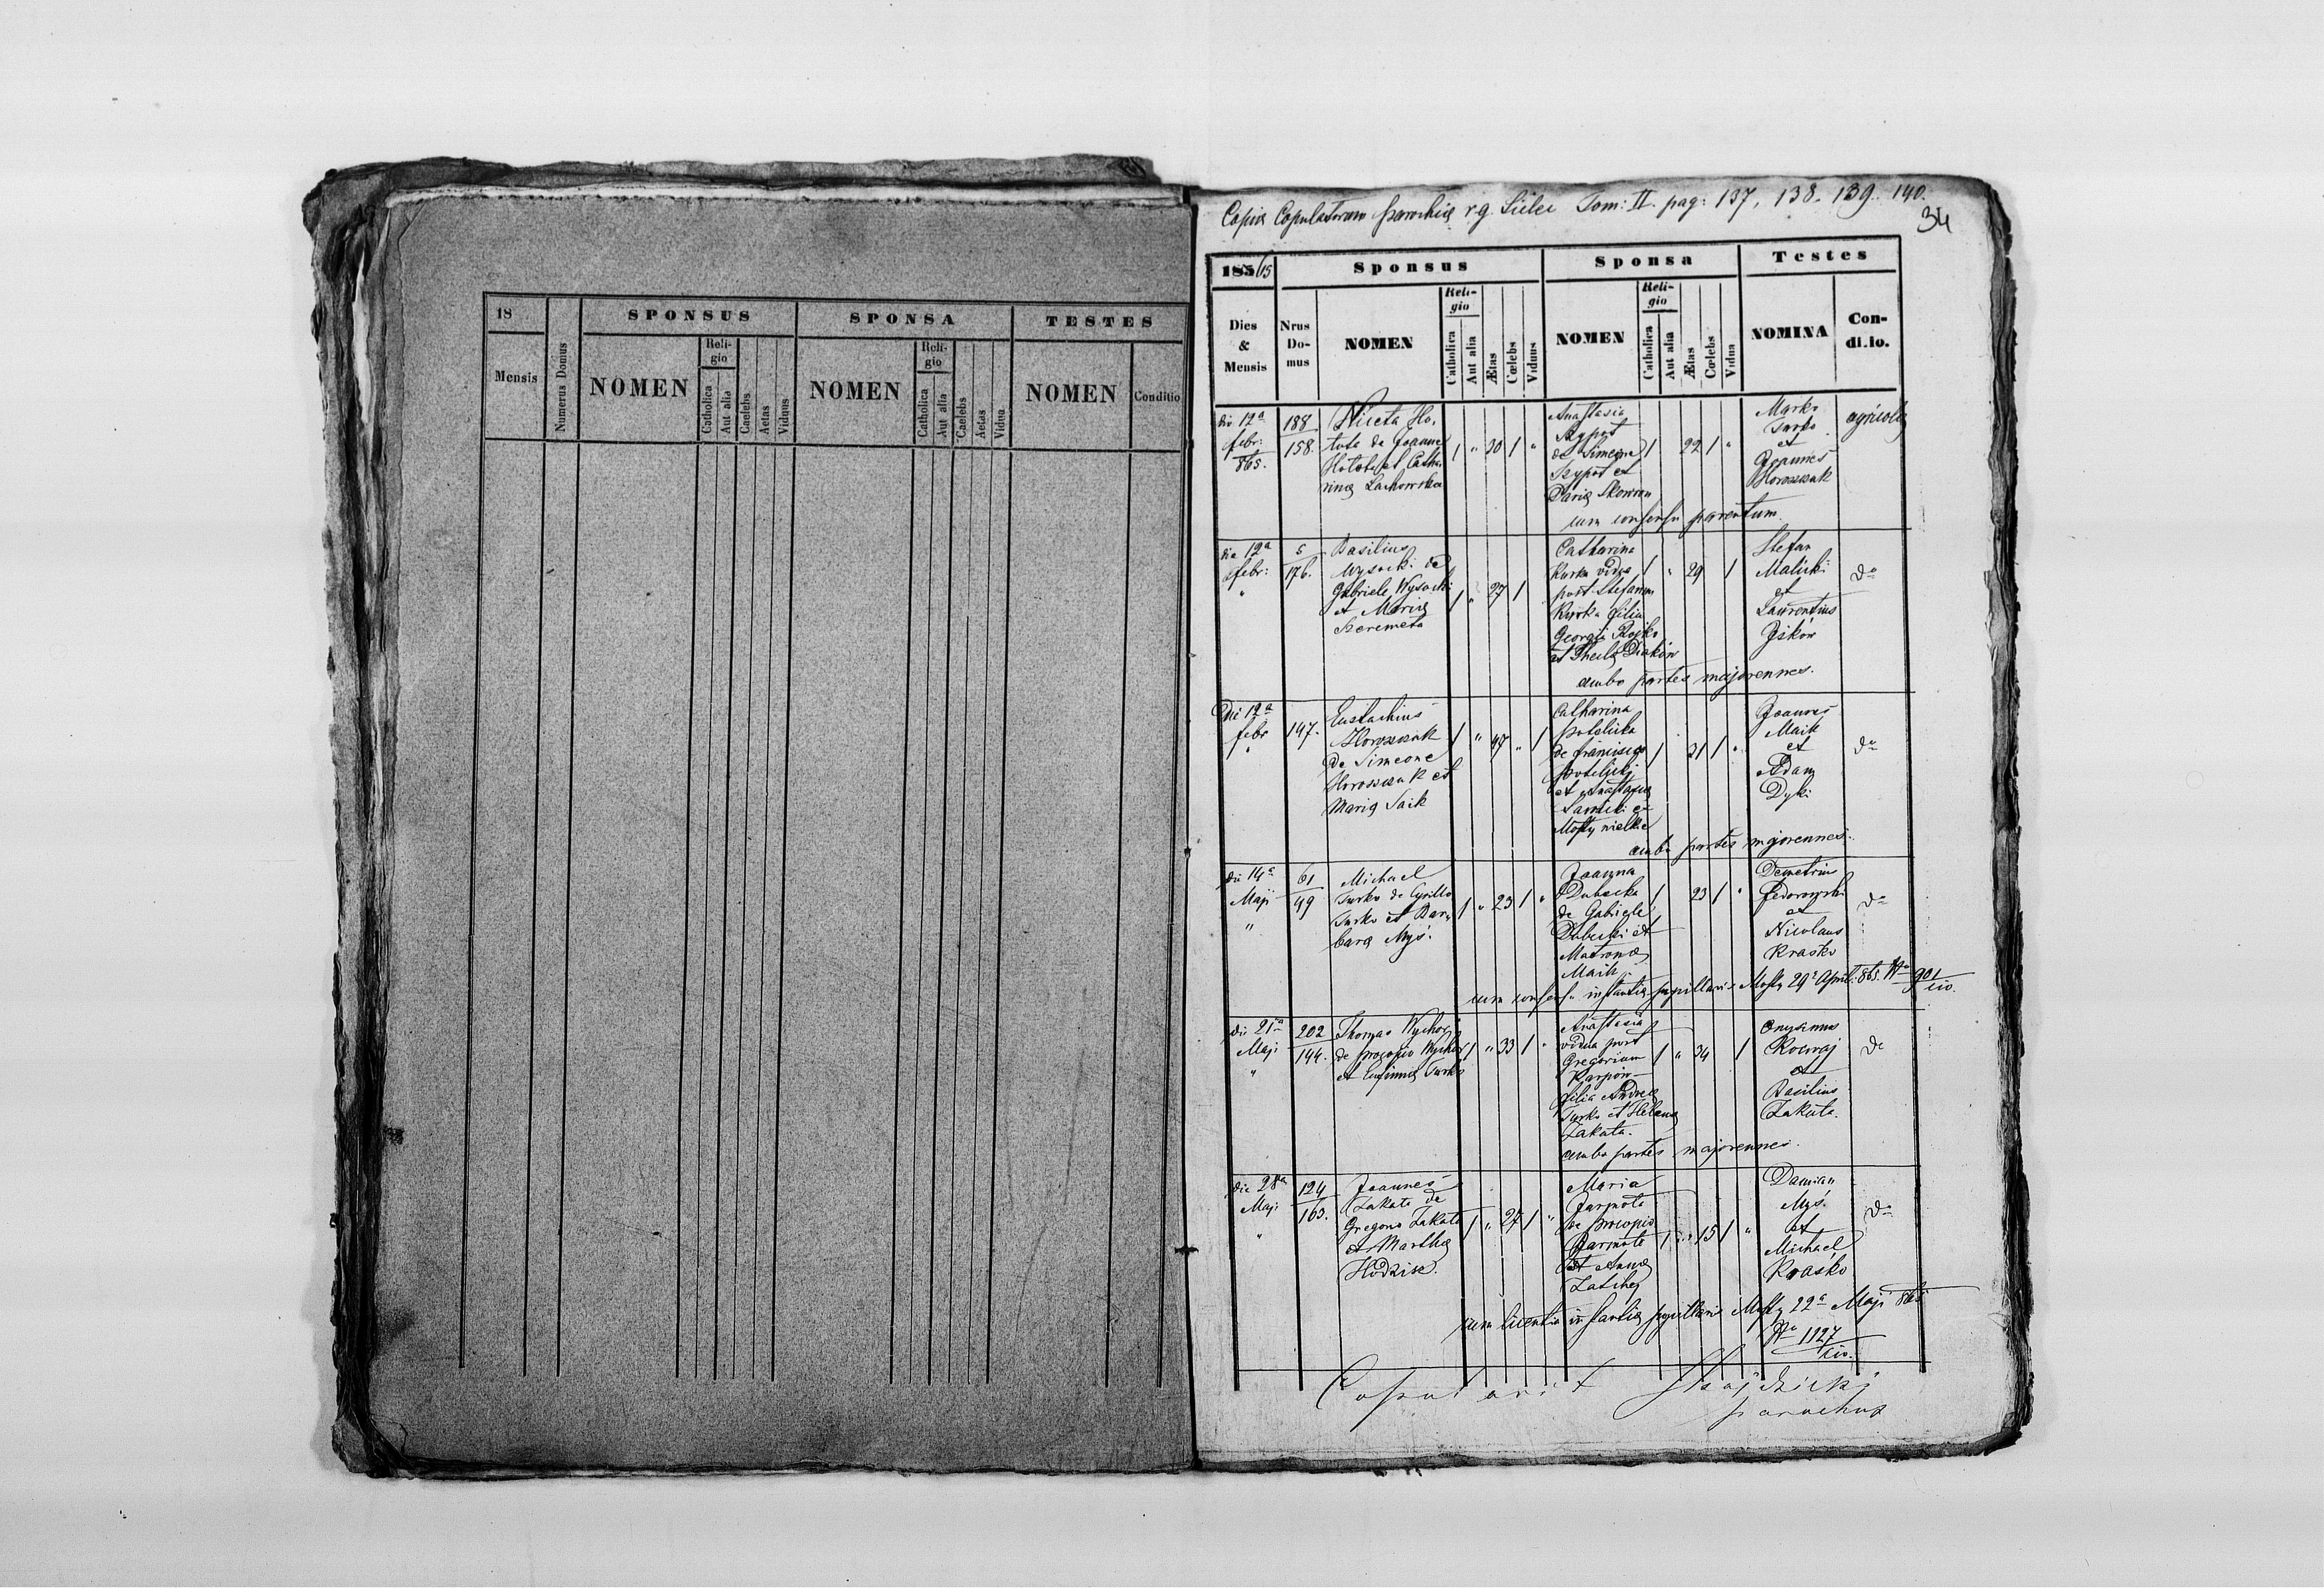 18
SPONSUS
SPONSA
TESTES
Mensis
Numerus Domus
NOMEN
Reli-
gio
Catholica
Aut alia
Caelebs
Aetas
Viduus
NOMEN
Reli-
gio
Catholica
Aut alia
Caelebs
Aetas
Vidua
NOMEN
Conditio
Copia Copulatorum parochiæ r.g. Sielec Tom: II. pag: 137, 138. 139. 140.
34
185 65
Sponsus
Sponsa
Testes
Dies
&
Mensis
Nrus
Do-
mus
NOMEN
Reli-
gio
Catholica
Aut alia
Ætas
Cœlebs
Viduus
NOMEN
Reli-
gio
Catholica
Aut alia
Ætas
Cœlebs
Vidua
NOMINA
Con-
di.io.
die 12a
febr:
865.
188
158.
Niceta Ho-
tota de Joanne
Hotota et Catha
rina Lachowska
1 " 30 1 "
Anastasia
de Simeone
Daria Skowron
1 22 1 "
Marko
Turko
et
Joannes
Horoszczuk
agricolæ
cum consensu parentum.
die 12a
febr:
"
5
176.
Basilius
Wysocki de
Gabriele Wysocki
et Maria
Szeremeta
1 " 27 1
Catharina
Kurka vidua
post Stefanum
Kurka filia
Georgii Bojko
et Theclæ Diaków
1 " 29 1
Stefan
Malicki
et
Laurentius
Jśków
do
ambo partes majorennes.
Die 12a
febr
"
147.
Eustachius
Horoszczuk
de Simeone
Horoszczuk et
Maria Saik
1 " 47 " 1
Catharina
potelicka
de francisco
et Anastasia
Sawicki e
Mosty wielkie
1 31 1 "
Joannes
Maik
et
Adam
Dyki
do
ambo partes majorennes.
die 14a
Maji
"
61
49
Michael
Turko de Cyrillo
Turko et Bar-
bara Myś.
1 " 23 1 "
Joanna
Dubecka
de Gabriele
Dubecki et
Matrona
Maik
1 23 1 "
Demetrius
fedorowski
et
Nicolaus
Krasko
do
cum consensu instantiæ pupillaris Mosty 29a April. 865. No 901/civ.
die 21a
Maji
"
202
144.
Thomas Wychor
de procopio Wychor
et Eufimia Turko
1 " 33 1 "
Anastasia
vidua post
Gregorium
Karpów
filia Andreæ
Turko et Helenæ
Zakała.
1 " 34 1
Onysimus
et
Basilius
Zakała.
do
ambo partes majorennes.
die 28a
Maji
"
124
163.
Joannes
Zakała de
Gregorio Zakała
et Martha
1 " 27 1 "
Maria
Jarmoła
de procopio
Jarmoła
et Anna
1 " 15 1 "
Damian
Myś.
et
Michael
Krasko
do
cum licentia instantiæ pupillaris Mosty 22a Maji 865
No 1127/civ.
Copulavit
parochus